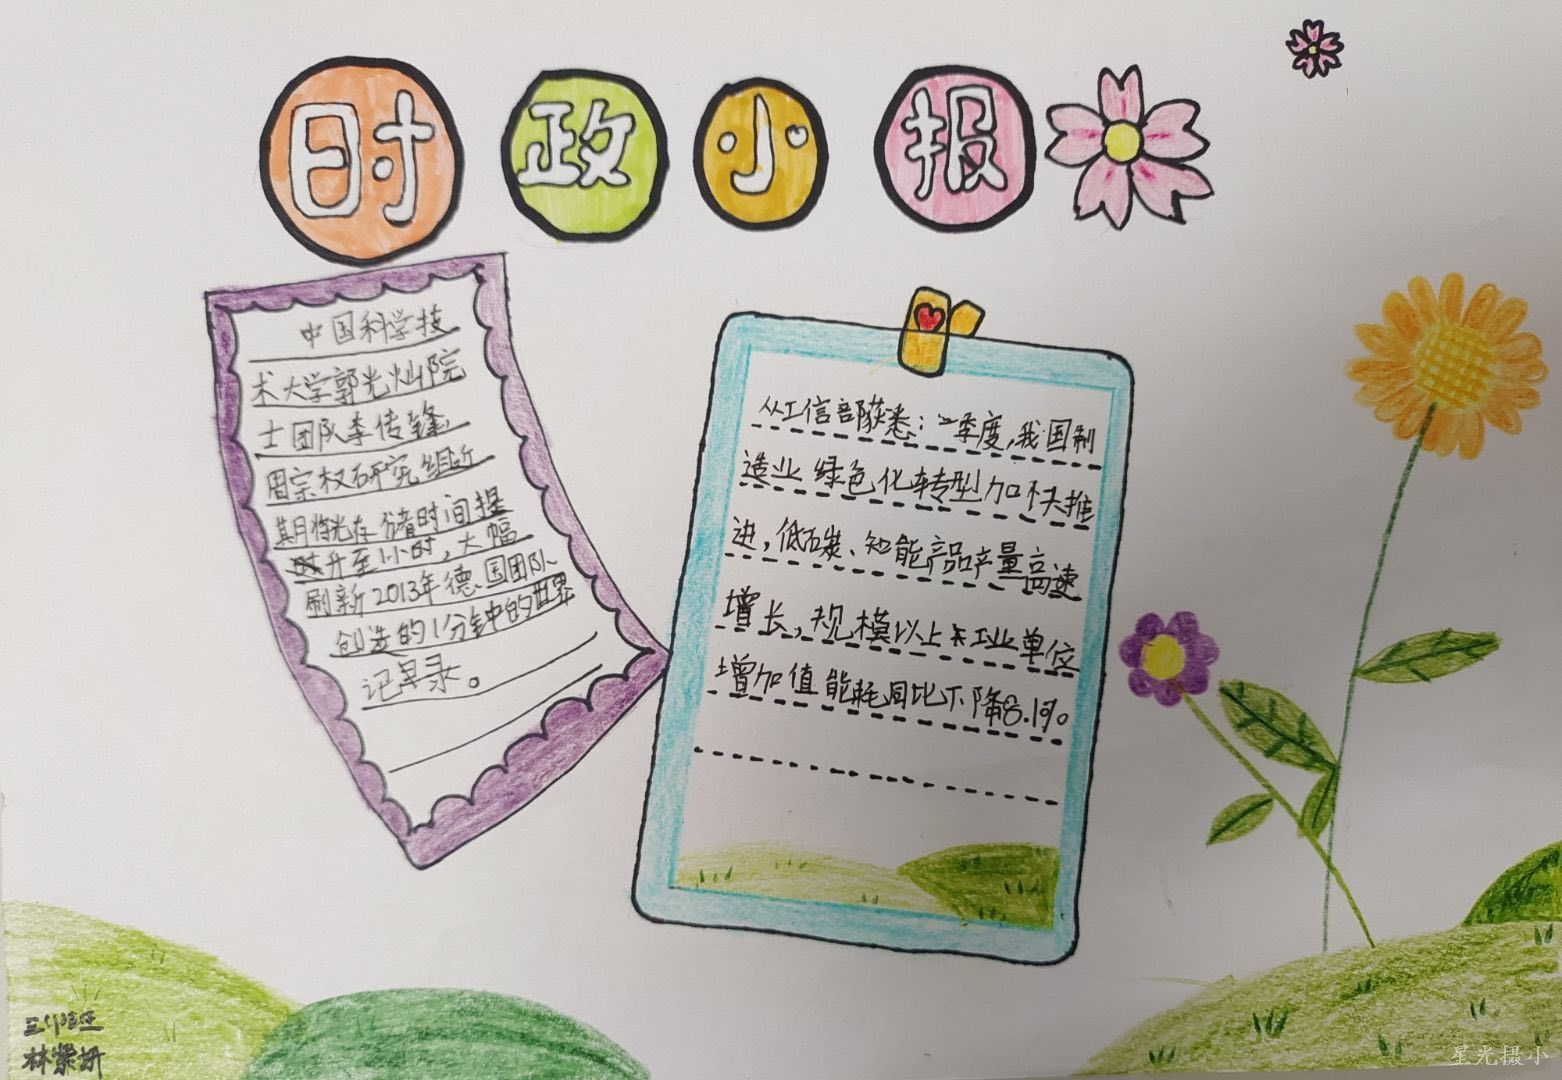 时政小报
中国科学技
术大学郭光灿院
士团队李传锋、
周宗权研究组近
期将光存储时间提
升至1小时,大幅
刷新2013年德国团队
创造的1分钟的世界
记录。
从工信部获悉:一季度,我国制
造业绿色化转型加快推
进,低碳、知能产品产量高速
增长,规模以上工业单位
增加值能耗同比下降8.1%。
林紫妍
星光摄小